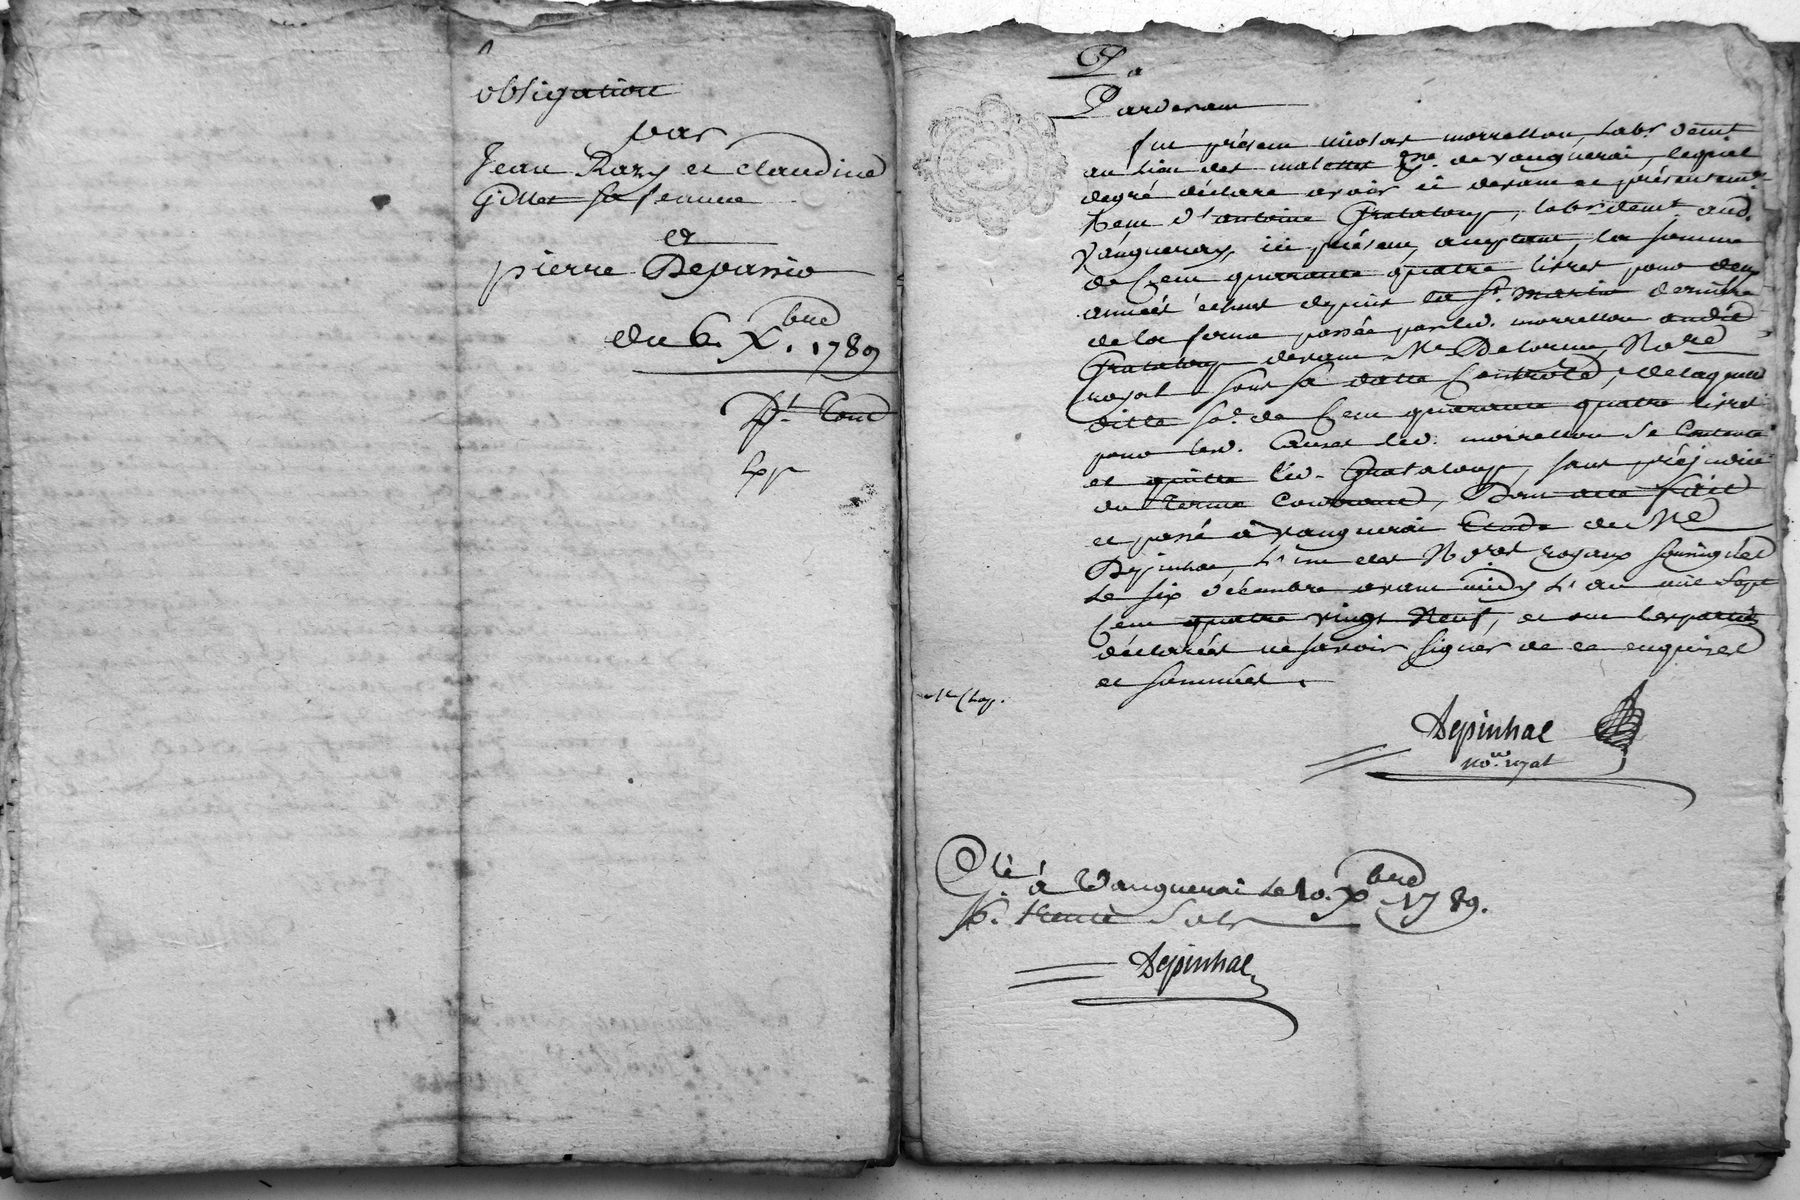 obligation
par
Jean Razy et Claudine
Gillet sa femme
et
pierre Depassio
du 6. X.bre 1789
Pardevant
fut présent nicolas morrellon labr. demt.
au lieu des malottes psse. de vaugnerai, lequel
de gré déclare avoir ci devant et présentement
Receu d'antoine Grataloup, labr. demt. aud.
Vaugneray, ici présent, acceptant, la somme
de Cent quarante quatre livres pour deux
années échues depuis la St. Martin dernière
de la ferme passée par led. morrellon audit
Grataloup devant Me. Delorme, No.re
royal sous sa datte Controlé, de laquelle
ditte so.e de Cent quarante quatre livres
pour lesd. Causes led. morrellon se Contente
et quitte led. Grataloup, sans préjudice
du terme Courant, Dont acte fait
et passé à vaugnerai Etude de Me
Depinhac, L'un des No.res royaux soussignés
Le six décembre avant midy L'an mil sept
Cent quatre vingt Neuf, et ont les parties
déclarées ne savoir signer de ce enquises
et sommées.
Depinhac
no.re royal
Clé à Vaugnerai Le 10. X.bre 1789.
R. trente sols
Depinhac